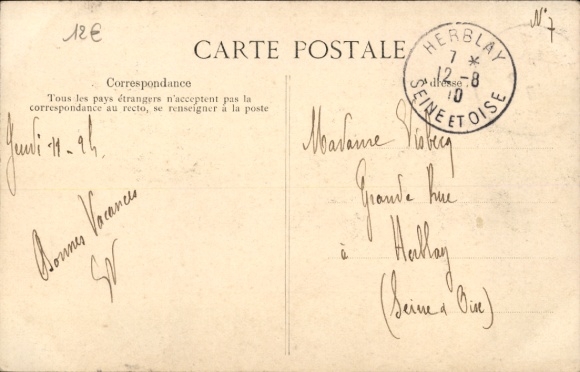 12€
N° 7
CARTE POSTALE
HERBLAY
7 *
12-8
10
SEINE ET OISE
Correspondance
Tous les pays étrangers n'acceptent pas la
correspondance au recto, se renseigner à la poste
dresse
Jeudi 11 - 9h.
Bonnes Vacances
Madame
Grande Rue
à Herblay
(Seine & Oise)